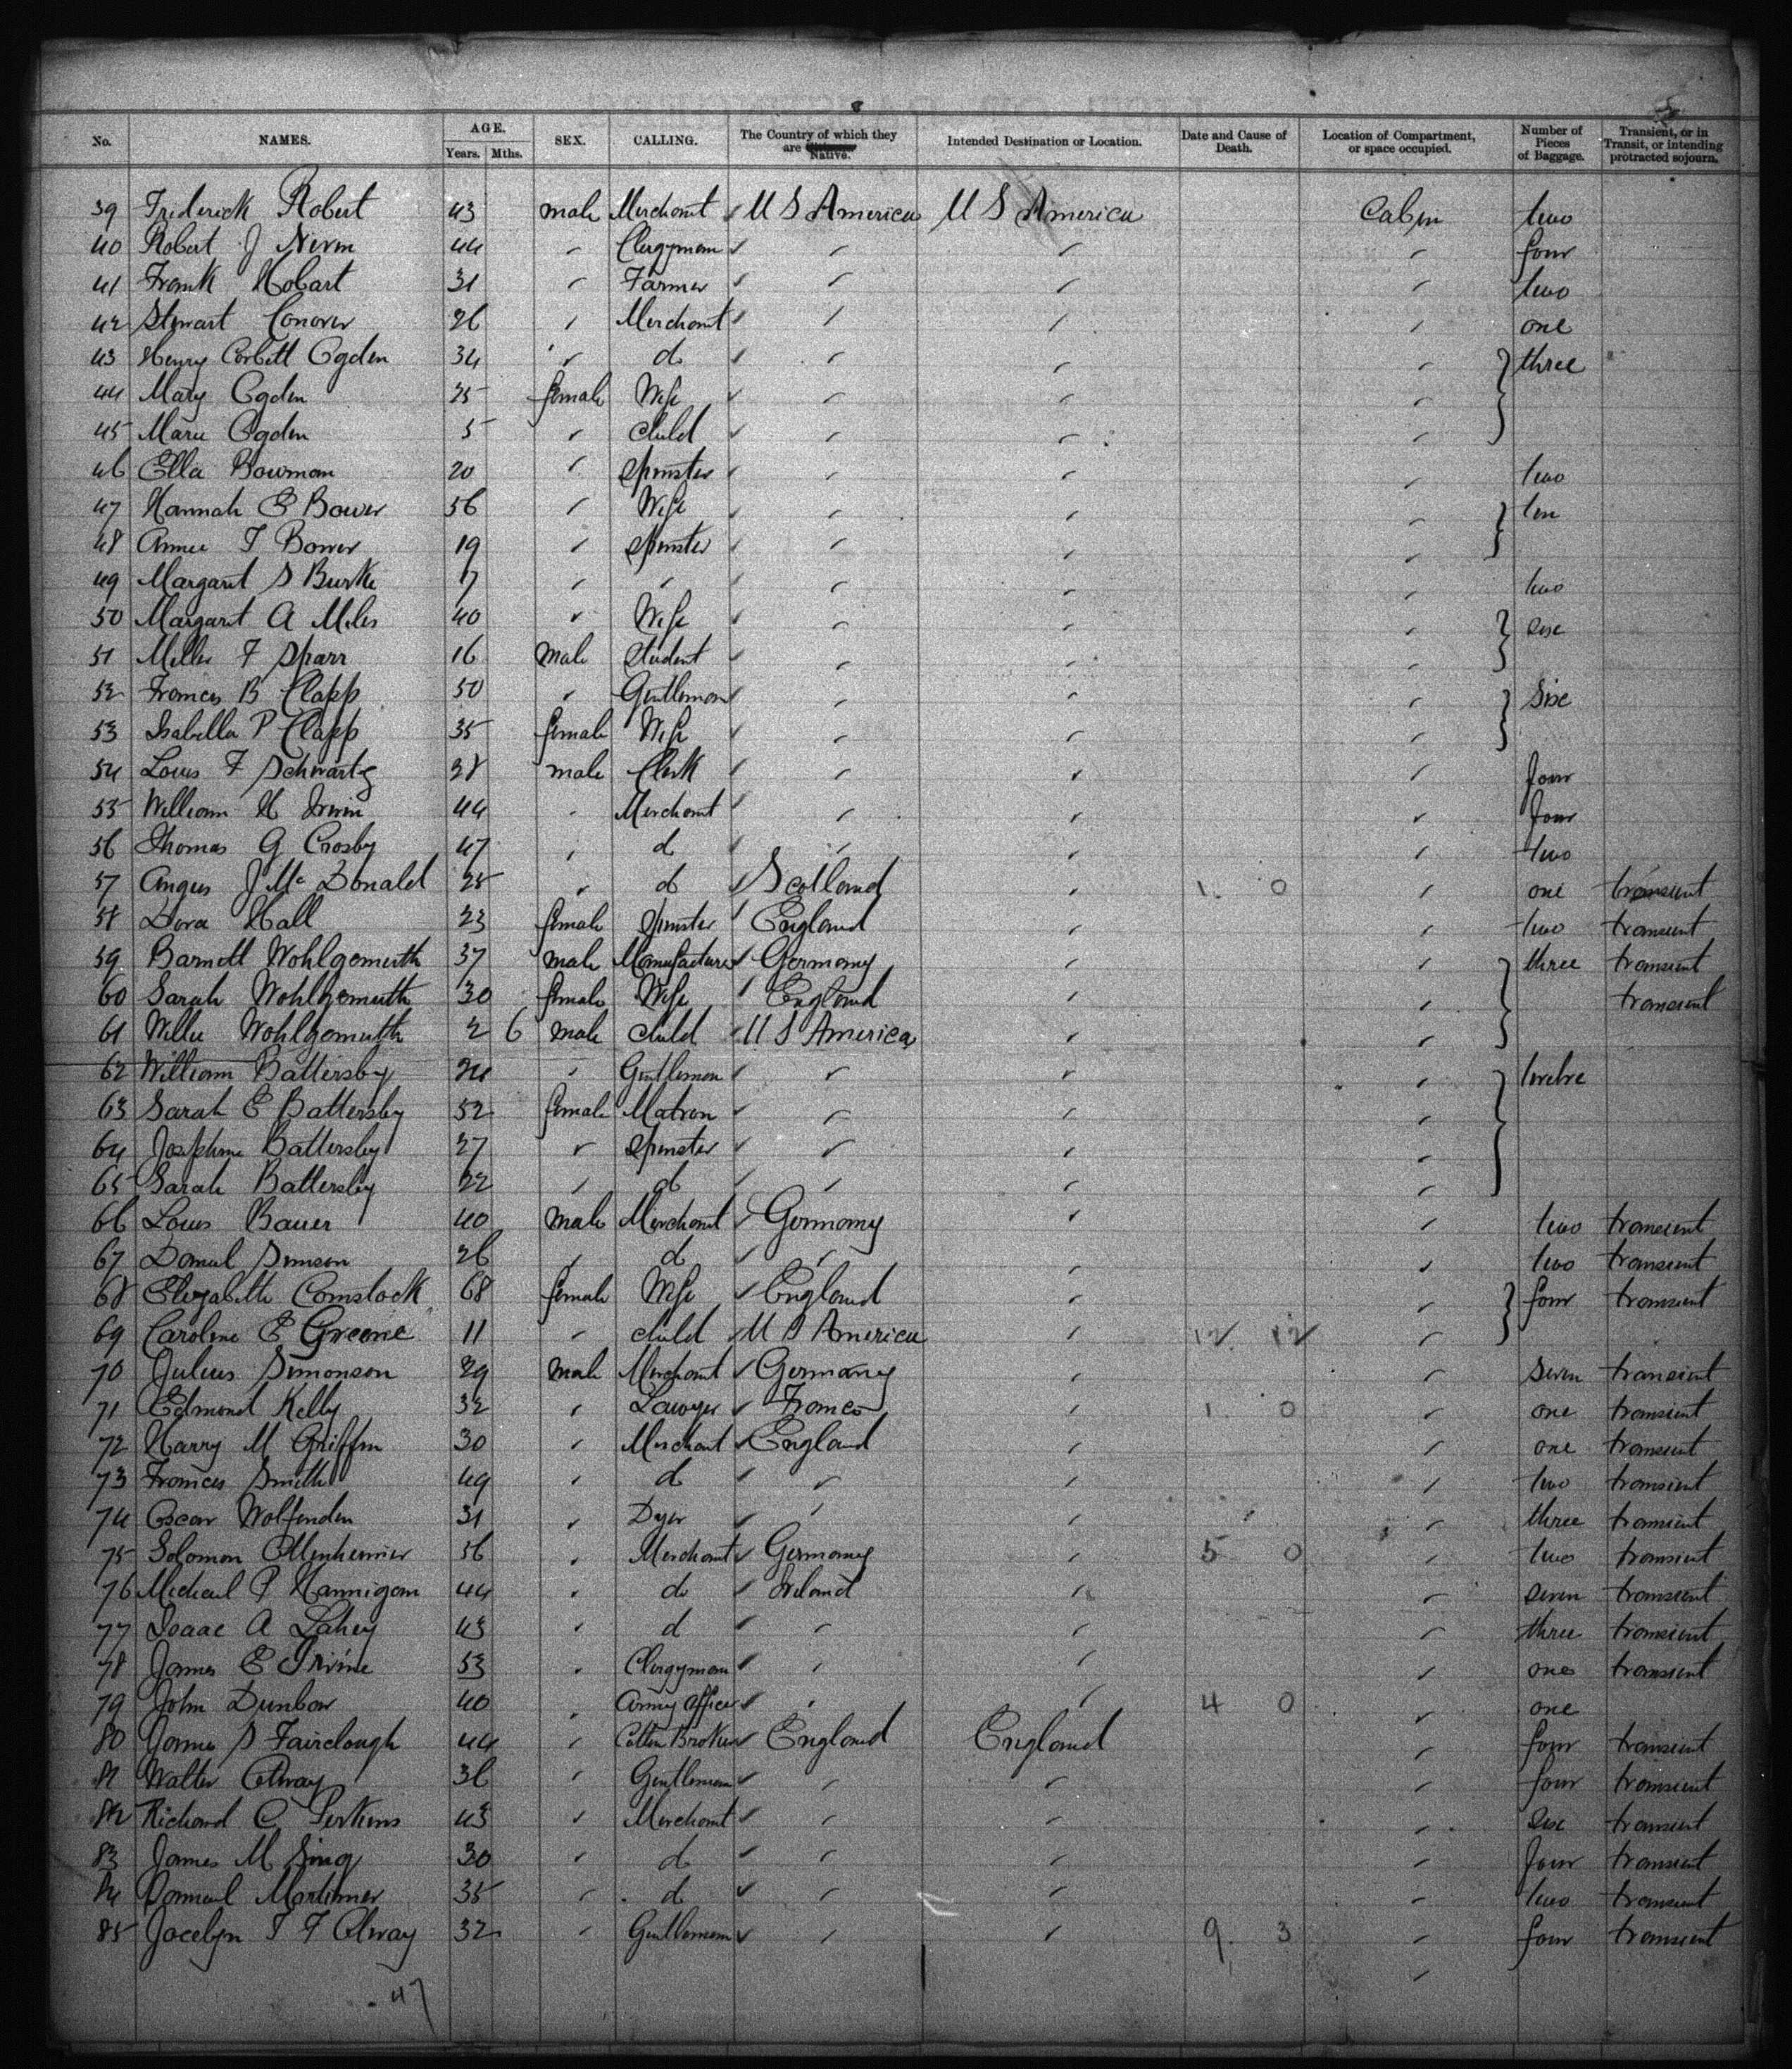 No. NAMES. AGE. Years. Mths. SEX. CALLING. The Country of which they are Native. Intended Destination or Location. Date and Cause of Death. Location of Compartment, or space occupied. Number of Pieces of Baggage. Transient, or in Transit, or intending protracted sojourn.
39 Frederick Robert 43 male Merchant U S America U S America Cabin two
40 Robert J Nevin 44 Clergyman four
41 Frank Hobart 31 Farmer two
42 Stewart Conover 26 Merchant one
43 Henry Corbett Ogden 34 do three
44 Mary Ogden 25 female Wife
45 Marie Ogden 5 child
46 Ella Bowman 20 Spinster two
47 Hannah E Bower 56 Wife ten
48 Annie T Bower 19 Spinster
49 Margaret S Burke 17 two
50 Margaret A Miles 40 Wife six
51 Miller F Sparr 16 male Student
52 Frances B Clapp 50 Gentleman six
53 Isabella P Clapp 35 female Wife
54 Louis F Schwartz 28 male Clerk four
55 William H Irwin 44 Merchant four
56 Thomas G Crosby 47 do two
57 Angus J Mc Donald 25 do Scotland 1. 0 one transient
58 Dora Hall 23 female Spinster England two transient
59 Barnett Wohlgemuth 37 male Manufacturer Germany three transient
60 Sarah Wohlgemuth 30 female Wife England transient
61 Willie Wohlgemuth 2 6 male child U S America
62 William Battersby 24 Gentleman twelve
63 Sarah E Battersby 52 female Matron
64 Josephine Battersby 27 Spinster
65 Sarah Battersby 22 do
66 Louis Bauer 40 male Merchant Germany two transient
67 Daniel Simson 26 do two transient
68 Elizabeth Comstock 68 female Wife England four transient
69 Caroline E Greene 11 child U S America 12. 12
70 Julius Simonson 29 male Merchant Germany seven transient
71 Edmond Kelly 32 Lawyer France 1. 0 one transient
72 Harry M Griffin 30 Merchant England one transient
73 Frances Smith 49 do two transient
74 Oscar Wolfenden 31 Dyer three transient
75 Solomon Ottenheimer 56 Merchant Germany 5 0 two transient
76 Michael P Hannigan 44 do Ireland seven transient
77 Isaac A Lahey 43 do three transient
78 James E Irvine 53 Clergyman one transient
79 John Dunbar 40 Army Officer 4 0 one
80 James S Fairclough 44 Cotton Broker England England four transient
81 Walter Alway 36 Gentleman four transient
82 Richard C Perkins 43 Merchant six transient
83 James M Sing 30 do four transient
84 Daniel Mortimer 35 do two transient
85 Jocelyn T F Otway 32 Gentleman 9. 3 four transient
47